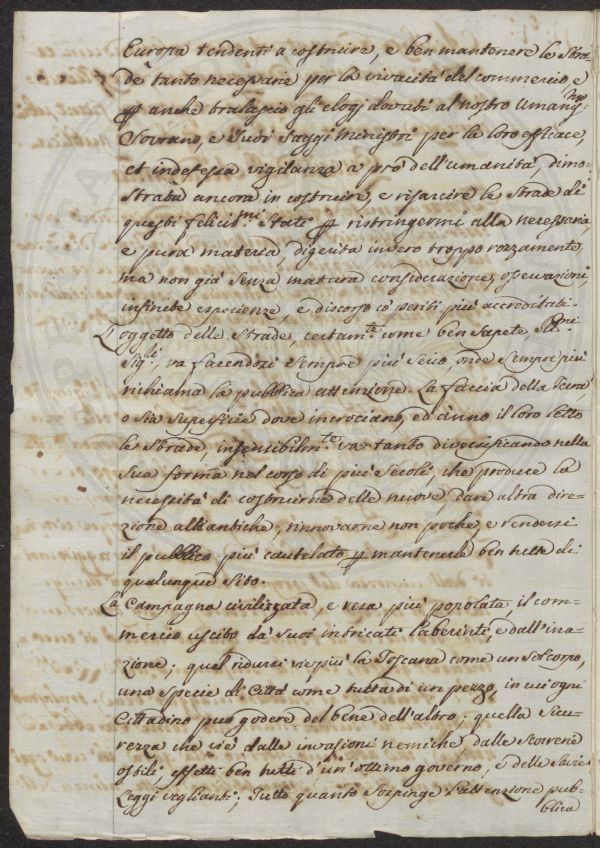 Europa tendenti a costruire, e ben mantenere le Stra-
de tanto necessarie per la vivacità del commercio, e
p anche tralascio gli elogj dovuti al nostro Umaniss.mo
Sovrano, e Suoi Saggi Ministri per la loro efficace,
et indefessa vigilanza a prò dell'umanità, dimo-
strata ancora in costruire, e risarcire le Strade di
questi felicis.mi Stati p ristringermi alla necessaria,
e pura materia, digerita invero troppo rozzamente,
ma non già senza matura considerazione, osservazioni,
infinite esperienze, e discorso cò periti più accreditati.
L'oggetto delle Strade, certam.te come ben sapete, Ill.mi
Sig.ri, va facendosi sempre più serio, onde sempre più
richiama la pubblica attenzione. La faccia della Terra,
o sia superficie dove incrociano, ed ànno il loro letto
le Strade, insensibilm.te va tanto diversificando nella
sua forma nel corso di più Secoli, che produce la
necessità di costruirne delle nuove, dare altra dire-
zione all'antiche, rinnovarne non poche, e rendersi
il pubblico più cautelato p mantenerle ben tutte di
qualunque sito.
La Campagna civilizzata, e resa più popolata, il com-
mercio uscito dà suoi intricati laberinti, e dall'ina-
zione; quel ridursi viepiù la Toscana come un sol corpo,
una specie di Città come tutta di un pezzo, in cui ogni
Cittadino può godere del bene dell'altro; quella Sicu-
rezza che vi è dalle invasioni nemiche, dalle Scorrerie
ostili, effetti ben tutti d'un'ottimo governo, e delle Savie
Leggi veglianti; Tutto quanto Sospinge l'attenzione pub-
blica